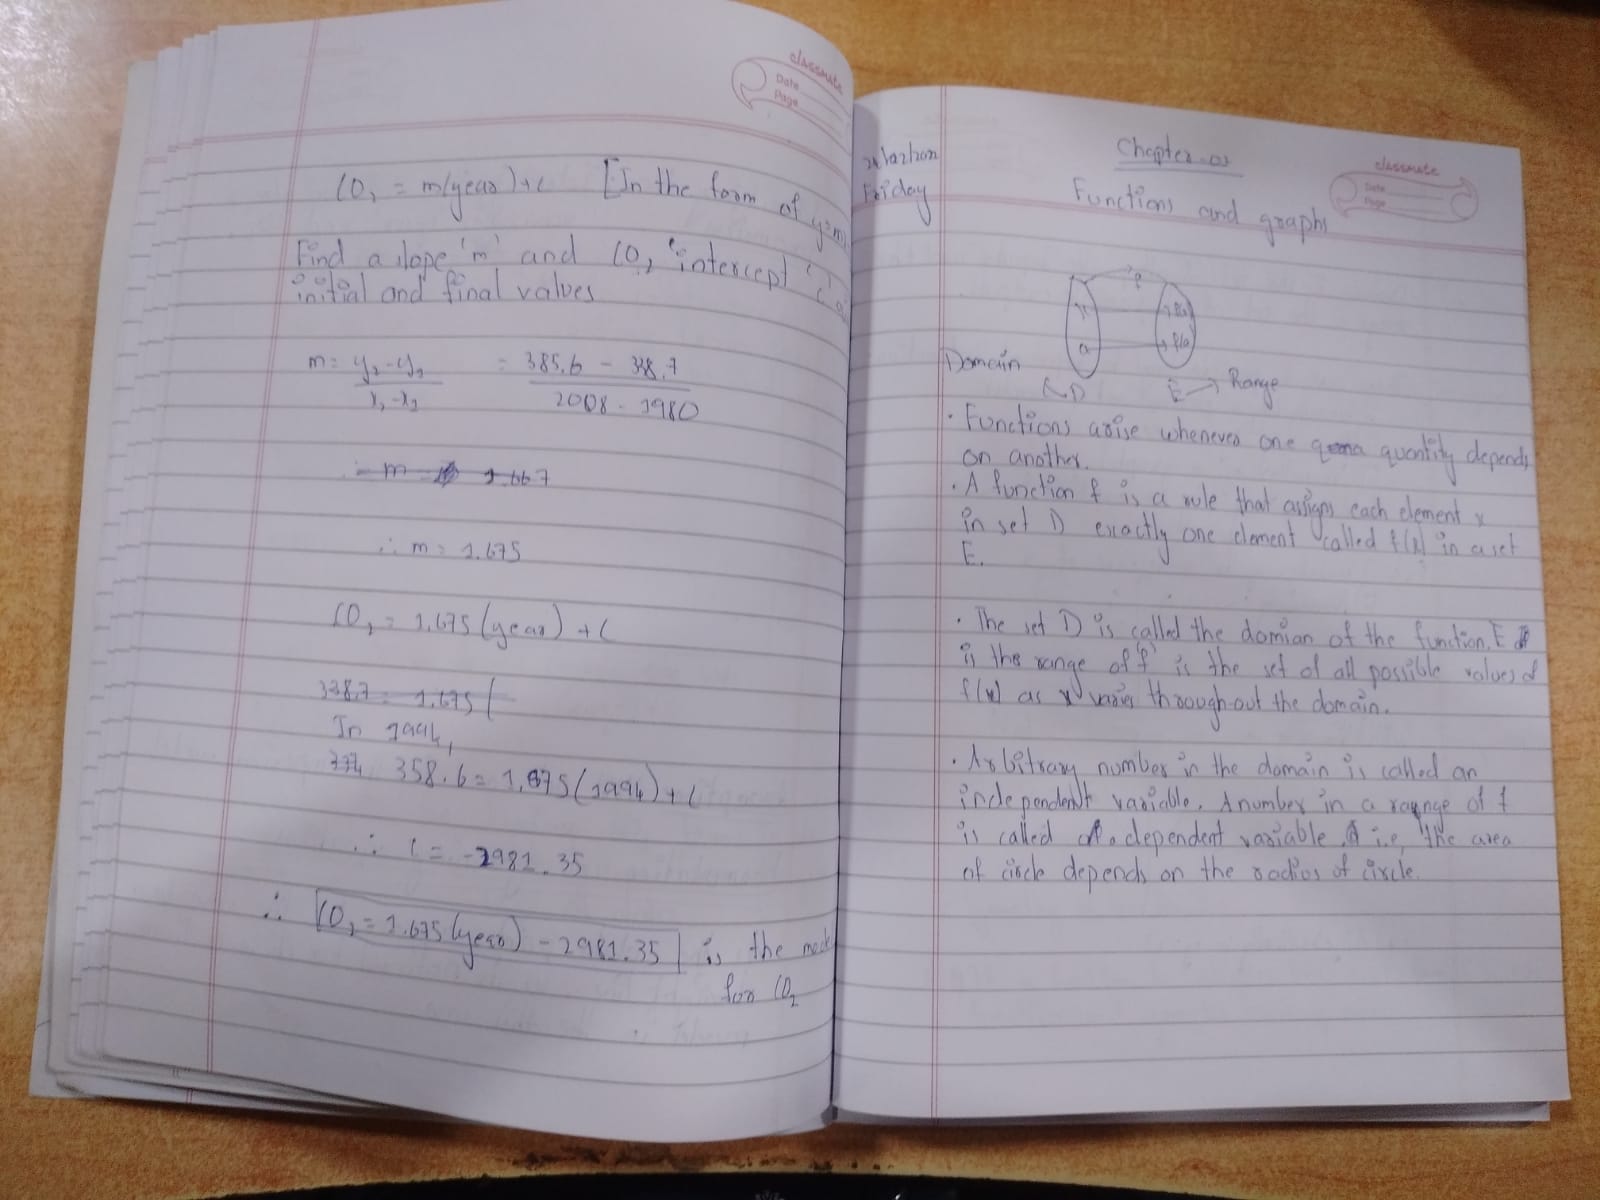 classmate
Date
Page
CO₂ = m(year)+c [In the form of y=m
Find a slope 'm' and CO₂ 'intercept'
initial and final values
m = y₂-y₁ = 385.6 - 338.7
x₂-x₁ 2008 - 1980
m 1.667
∴ m = 1.675
CO₂ = 1.675 (year) + C
338.7 = 1.675 (
In 1994,
358.6 = 1.675 (1994) + C
∴ C = -2981.35
∴ CO₂ = 1.675 (year) - 2981.35 is the mode
for CO₂
Friday
Chapter-01
classmate
Date
Page
Functions and graphs
f
x f(x)
a f(a)
Domain
D E → Range
· Functions arise whenever one quantity depends
on another.
· A function f is a rule that assigns each element x
in set D exactly one element called f(x) in a set
E.
· The set D is called the domian of the function. E
is the range of f is the set of all possible values of
f(x) as x varies throughout the domain.
· Arbitrary number in the domain is called an
independent variable. A number in a range of f
is called a dependent variable. i.e, the area
of circle depends on the radius of circle.